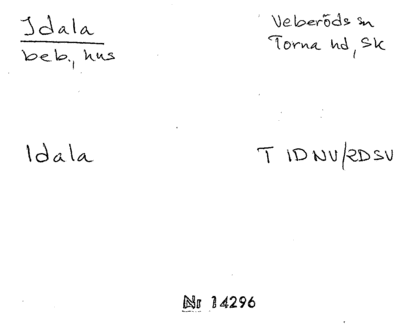 Idala
beb., hus
Veberöds sn
Torna hd, Sk
Idala
T 1D NV/2D SV
Nr 14296